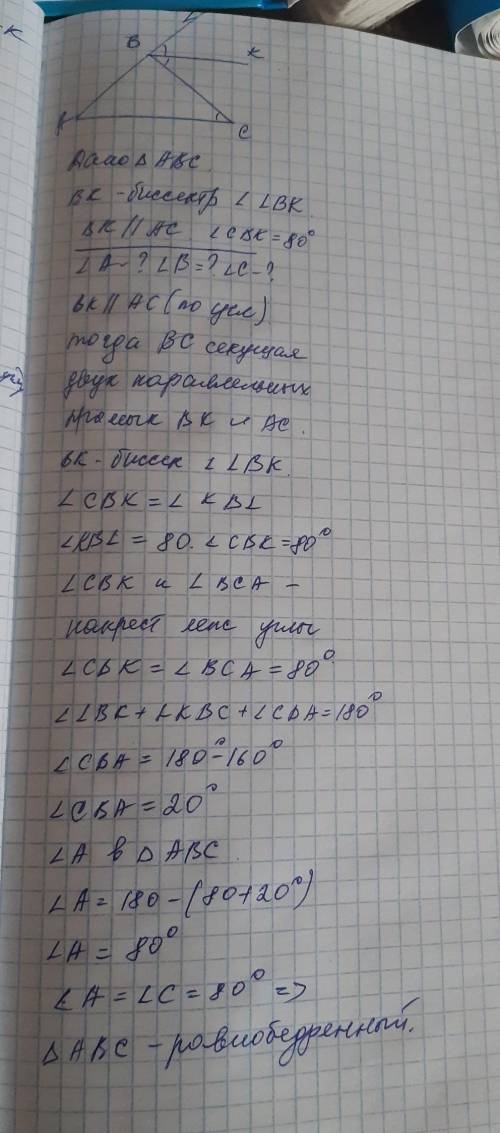 B
K
A
C
Дано Δ ABC.
BK - биссектр ∠ LBK
BK || AC ∠CBK = 80°
∠A - ? ∠B = ? ∠C - ?
BK || AC (по усл)
тогда BC секущая
двух параллельных
прямых BK и AC.
BK - биссек ∠ LBK.
∠CBK = ∠ KBL
∠KBL = 80. ∠CBK = 80°
∠CBK и ∠BCA -
накрест леж углы
∠CBK = ∠BCA = 80°
∠LBK + ∠KBC + ∠CBA = 180°
∠CBA = 180° - 160°
∠CBA = 20°
∠A в Δ ABC
∠A = 180 - (80 + 20°)
∠A = 80°
∠A = ∠C = 80° =>
Δ ABC - равнобедренный.